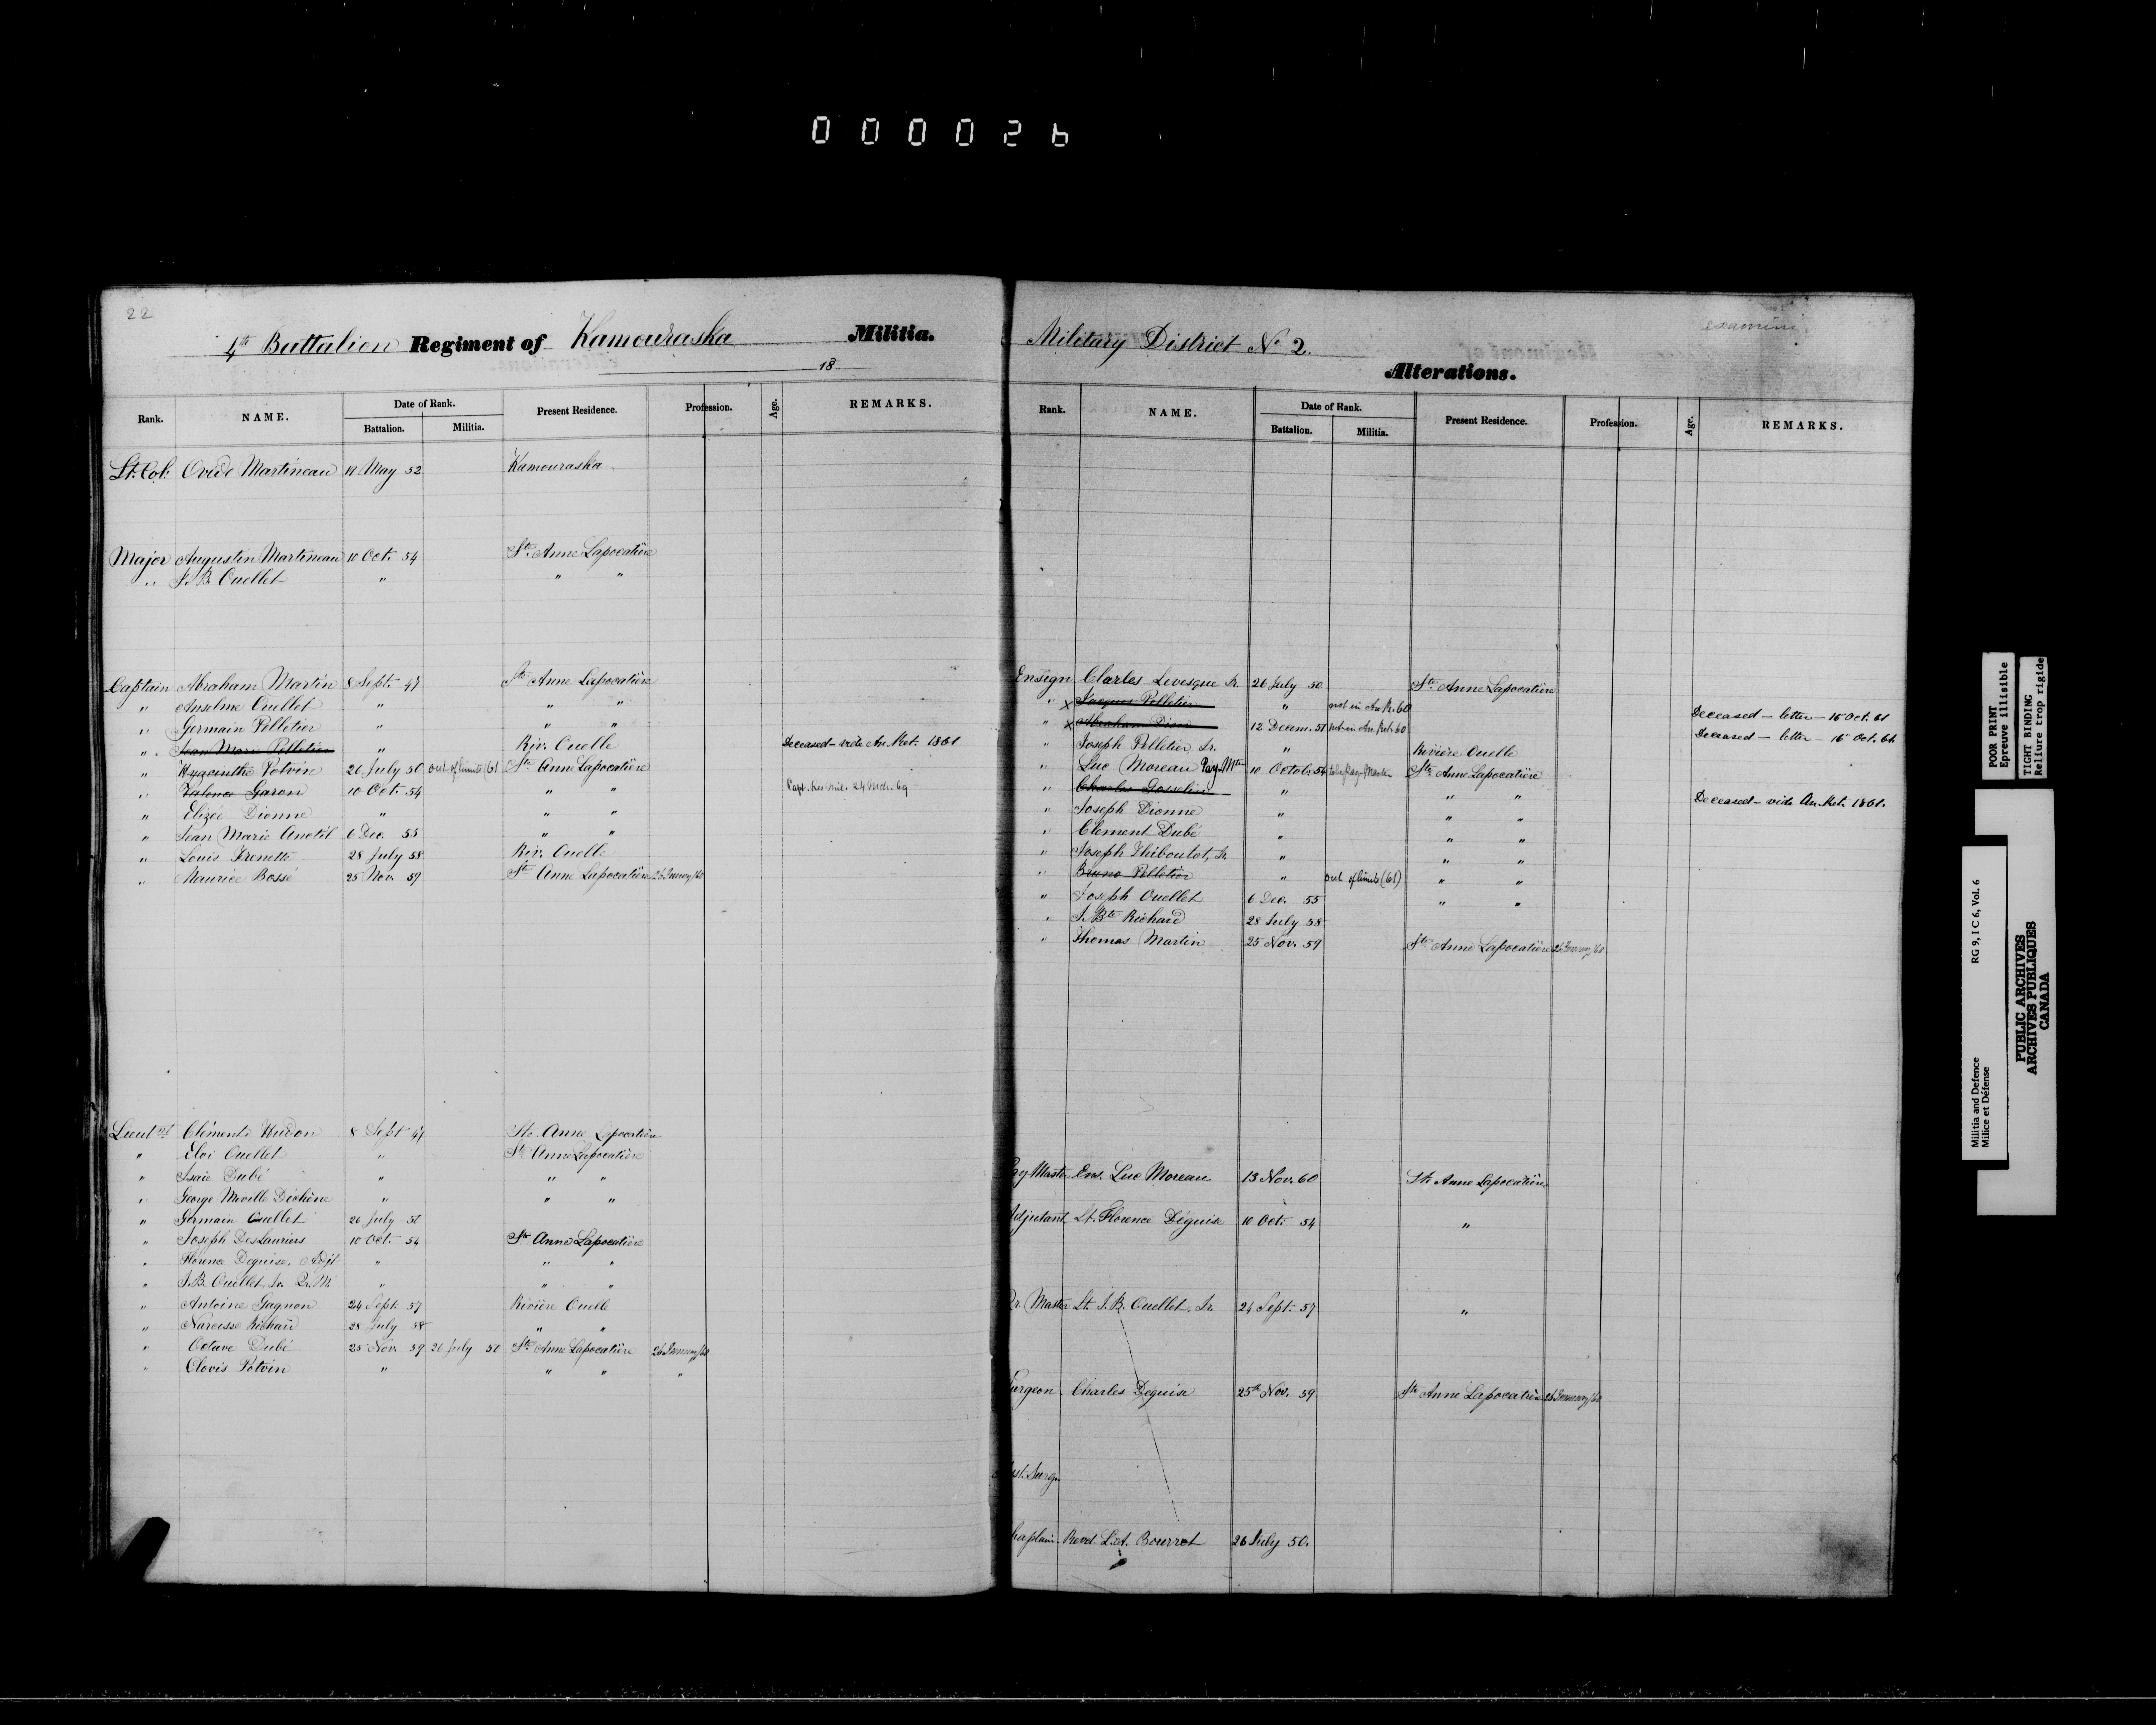 000026
22
4th Battalion Regiment of Kamouraska Militia.
18
Rank. NAME. Date of Rank. Present Residence. Profession. Age. REMARKS.
Battalion. Militia.
Lt. Col. Ovide Martineau 11 May 52 Kamouraska
Major Augustin Martineau 10 Oct. 54 Ste. Anne Lapocatière
" J. B. Ouellet " " "
Captain Abraham Martin 8 Sept. 47 Ste Anne Lapocatière
" Anselme Ouellet " " "
" Germain Pelletier " " "
" Jean Marie Pelletier " Riv. Ouelle Deceased - vide An. Ret. 1861
" Hyacinthe Potvin 26 July 50 out of limits (61 Ste Anne Lapocatière
" Valence Garon 10 Oct. 54 " " Capt. 24 69
" Elizée Dionne " " "
" Jean Marie Anctil 6 Dec. 55 " "
" Louis Frenette 28 July 58 Riv. Ouelle
" Maurice Bossé 25 Nov. 59 Ste Anne Lapocatière 26 January/60
Lieutnt Clément Hudon 8 Sept 47 Ste. Anne Lapocatière
" Eloi Ouellet " Ste Anne Lapocatière
" Isaïe Dubé " " "
" George Miville Dechène " " "
" Germain Ouellet 26 July 50
" Joseph DesLauriers 10 Oct. 54 Ste Anne Lapocatière
" Florence Deguise, Adjt " " "
" J. B. Ouellet, Jr. Qr. M. " " "
" Antoine Gagnon 24 Sept. 57 Rivière Ouelle
" Narcisse Richard 28 July 58 " "
" Octave Dubé 25 Nov. 59 26 July 50 Ste Anne Lapocatière 26 January/60
" Clovis Potvin " " " "
Military District No 2.
Alterations.
Rank. NAME. Date of Rank. Present Residence. Profession. Age. REMARKS.
Battalion. Militia.
Ensign Charles Levesque Jr. 26 July 50 Ste. Anne Lapocatière
" x Jacques Pelletier " not in An. R. 60 Deceased - letter - 16 Oct. 61
" x Abraham Dion 12 Decem. 51 not in An. Ret. 60 Deceased - letter - 16 Oct. 61
" Joseph Pelletier Jr. " Rivière Ouelle
" Luc Moreau Pay-Mtr 10 Octob. 54 Pay-Master Ste Anne Lapocatière
" Charles Gosselin " " " Deceased - vide An. Ret. 1861.
" Joseph Dionne " " "
" Clement Dubé " " "
" Joseph Thiboutot, Jr. " " "
" Bruno Pelletier " out of limits (61) " "
" Joseph Ouellet 6 Dec. 55 " "
" J. Bte Richard 28 July 58
" Thomas Martin 25 Nov. 59 Ste Anne Lapocatière 26 January/60
ay Master Ens. Luc Moreau 13 Nov. 60 Ste Anne Lapocatière
Adjutant Lt. Florence Déguise 10 Oct. 54 "
Qr. Master Lt. J. B. Ouellet, Jr. 24 Sept. 57 "
urgeon Charles Deguise 25th Nov. 59 Ste Anne Lapocatière 26 January/60
sst. Surgn
haplain Revd. L. A. Bourret 26 July 50.
POOR PRINT
Epreuve illisible
TIGHT BINDING
Reliure trop rigide
Militia and Defence RG 9, I C 6, Vol. 6
Milice et Défense
PUBLIC ARCHIVES
ARCHIVES PUBLIQUES
CANADA